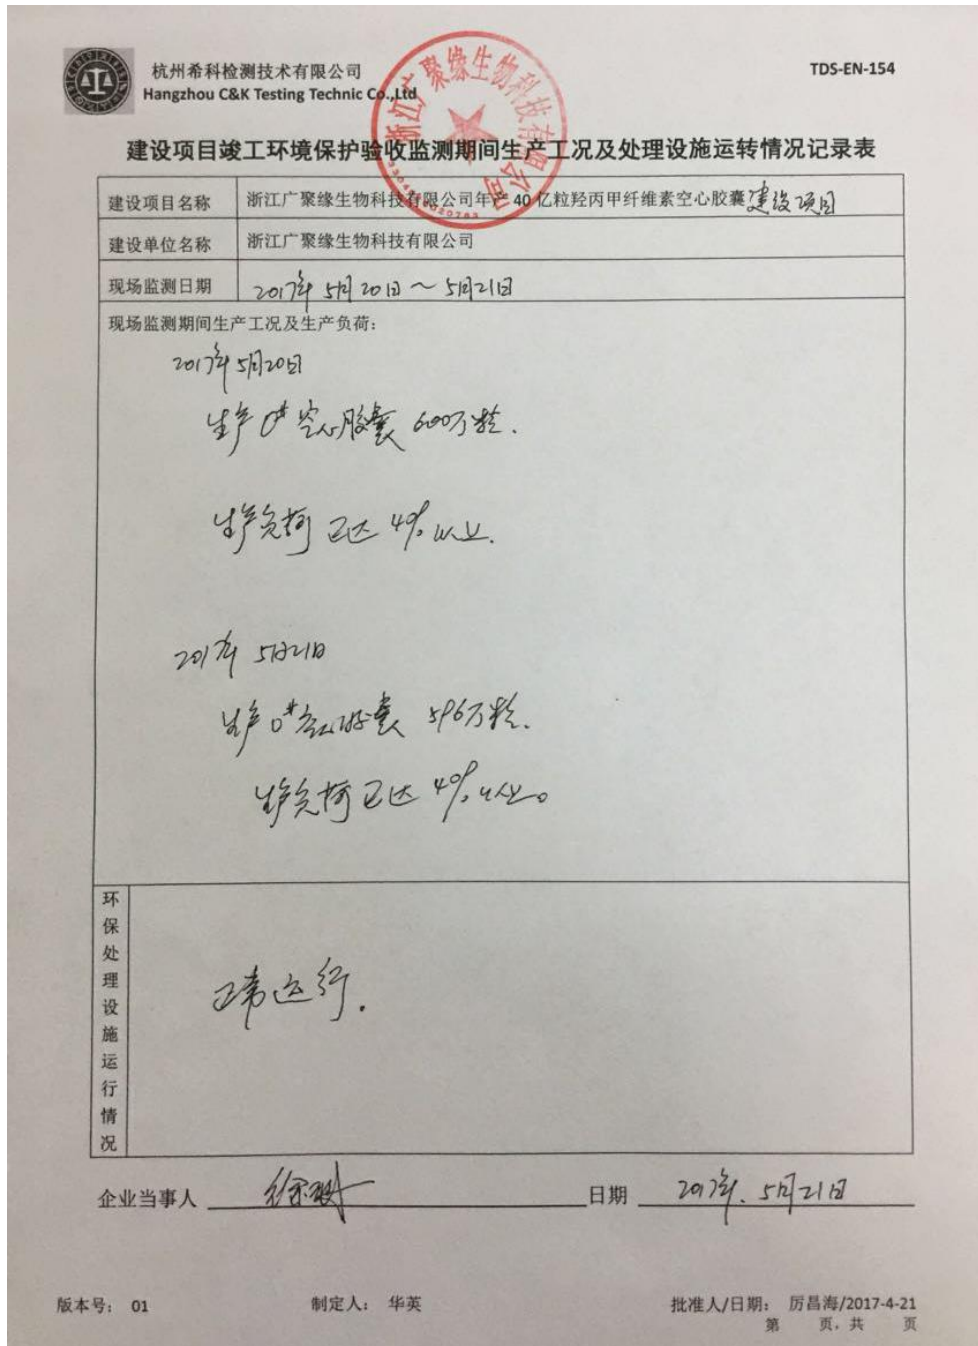 杭州希科检测技术有限公司
Hangzhou C&K Testing Technic Co.,Ltd
TDS-EN-154
浙江广聚缘生物科技有限公司
建设项目竣工环境保护验收监测期间生产工况及处理设施运转情况记录表
建设项目名称 浙江广聚缘生物科技有限公司年产 40 亿粒羟丙甲纤维素空心胶囊建设项目
建设单位名称 浙江广聚缘生物科技有限公司
现场监测日期 2017年5月20日～5月21日
现场监测期间生产工况及生产负荷：
2017年5月20日
生产0#空心胶囊 600万粒.
生产负荷已达4%以上.
2017年5月21日
生产0#空心胶囊 596万粒.
生产负荷已达4%以上。
环保处理设施运行情况
正常运行.
企业当事人
日期 2017年.5月21日
版本号： 01 制定人： 华英 批准人/日期： 厉昌海/2017-4-21
第 页，共 页